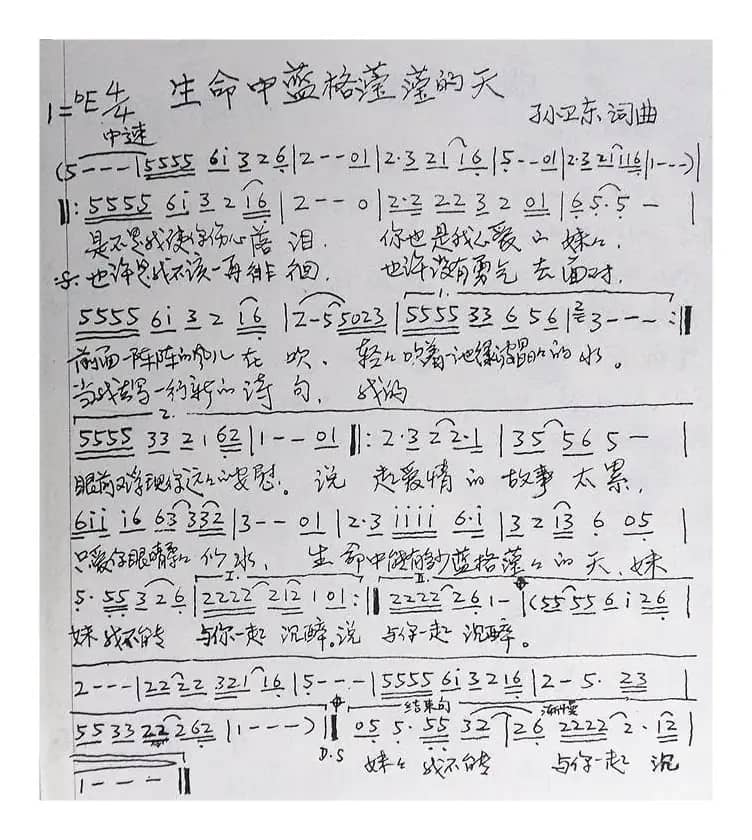 生命中蓝格莹莹的天
1=bE 4/4
孙卫东 词曲
中速
(5 - - - | 5555 6i 3 26 | 2 - - 01 | 2·3 21 16 | 5 - - 01 | 2·3 21116 | 1 - - -) |
‖: 5555 6i 3 2 16 | 2 - - 0 | 2·2 22 3 2 01 | 6 5· 5 - |
是不是我使你伤心落泪. 你也是我心爱的妹々.
也许是我不该一再徘徊. 也许没有勇气去面对.
1.
5555 6i 3 2 16 | 2 - 5 5023 | 5555 33 6 56 | 2 3 - - - :‖
前面一阵阵的风儿在吹. 轻々吹着
当我写一行新的诗句, 我的
2.
5555 33 2 1 62 | 1 - - 01 ‖: 2·3 2 2·1 | 35 56 5 - |
眼前又浮现你远々的安慰。说起爱情的故事太累,
6ii i6 63 332 | 3 - - 01 | 2·3 iiii 6·i | 3 2 i3 6 05 |
只爱你眼睛 似水, 生命中 蓝格莹々的天、妹
I. II.
5· 55 3 26 | 2222 212 1 01 :‖ 2222 26 1 - | (55 55 6 i 26 |
妹 我不能 与你一起 沉醉。说 与你一起 沉醉。
2 - - - | 22 22 321 16 | 5 - - - | 5555 6i 32 16 | 2 - 5· 23 |
结束句 渐慢
55 33 22 262 | 1 - - - ) ‖ 05 5· 55 32 | 26 2222 2· 12 |
D.S 妹々 我不能 与你一起 沉
1 - - - ‖